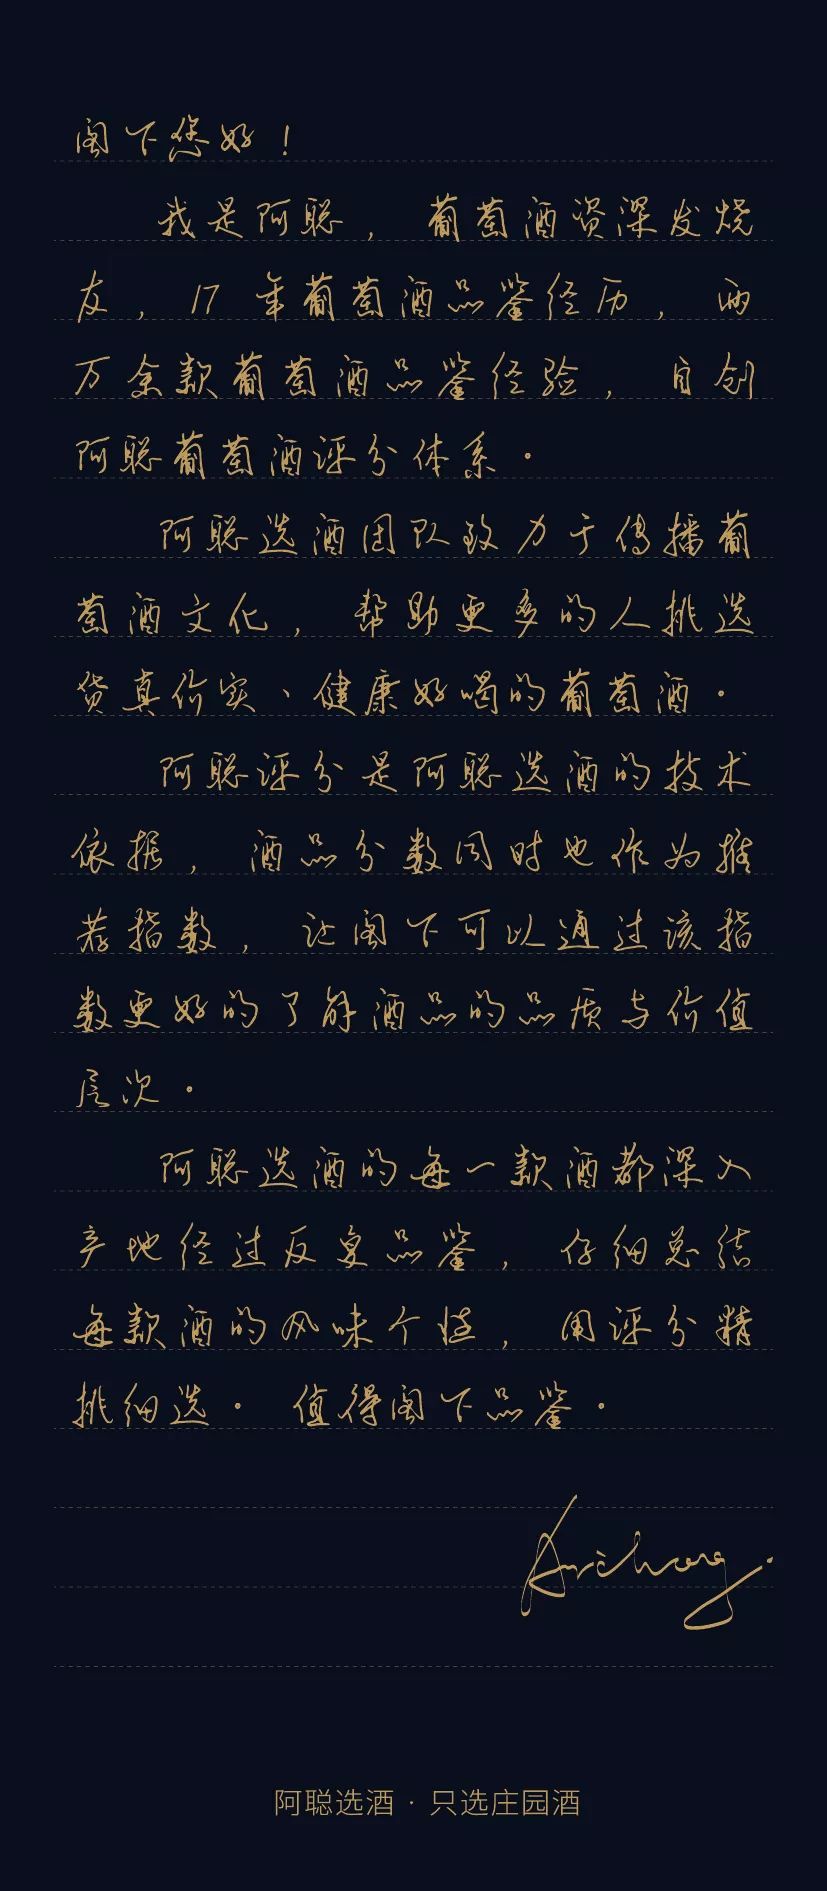 阁下您好！
我是阿聪，葡萄酒资深发烧
友，17年葡萄酒品鉴经历，两
万余款葡萄酒品鉴经验，自创
阿聪葡萄酒评分体系。
阿聪选酒团队致力于传播葡
萄酒文化，帮助更多的人挑选
货真价实、健康好喝的葡萄酒。
阿聪评分是阿聪选酒的技术
依据，酒品分数同时也作为推
荐指数，让阁下可以通过该指
数更好的了解酒品的品质与价值
层次。
阿聪选酒的每一款酒都深入
产地经过反复品鉴，仔细总结
每款酒的风味个性，用评分精
挑细选。值得阁下品鉴。
阿聪选酒·只选庄园酒